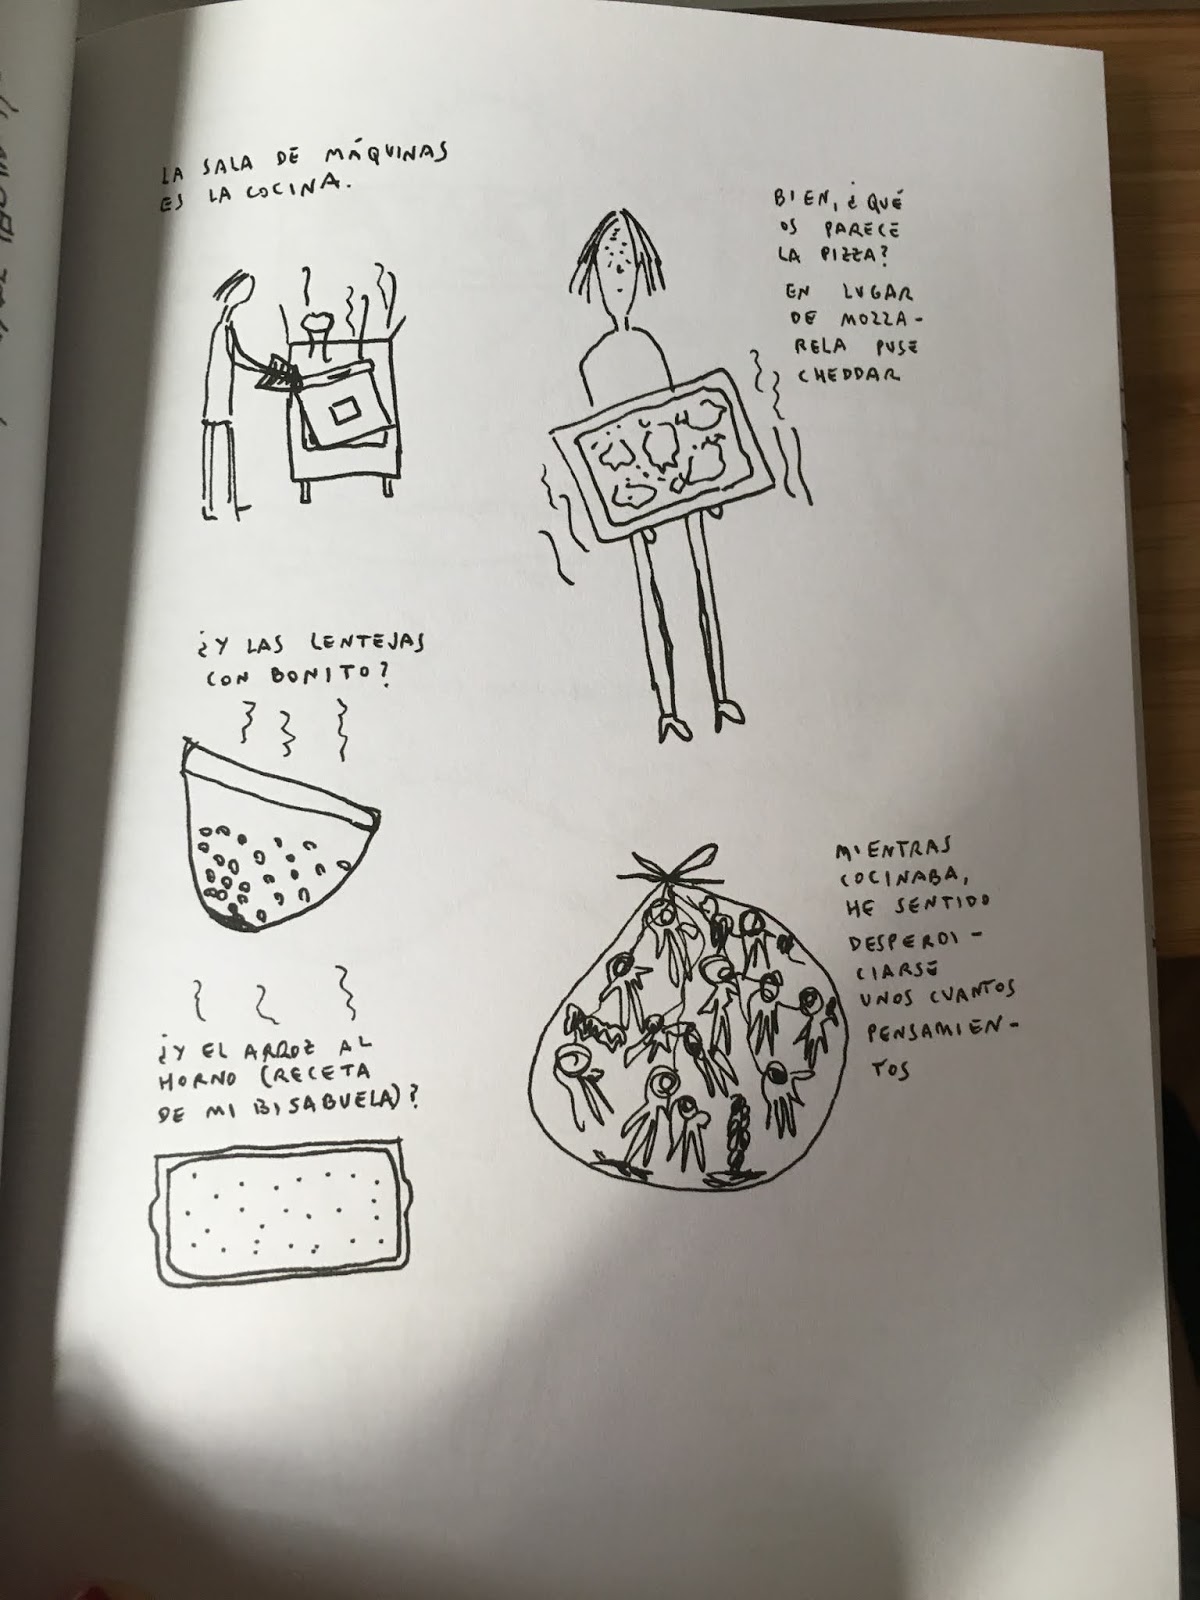 LA SALA DE MÁQUINAS
ES LA COCINA.
BIEN, ¿QUÉ
OS PARECE
LA PIZZA?
EN LUGAR
DE MOZZA-
RELA PUSE
CHEDDAR
¿Y LAS LENTEJAS
CON BONITO?
¿Y EL ARROZ AL
HORNO (RECETA
DE MI BISABUELA)?
MIENTRAS
COCINABA,
HE SENTIDO
DESPERDI-
CIARSE
UNOS CUANTOS
PENSAMIEN-
TOS